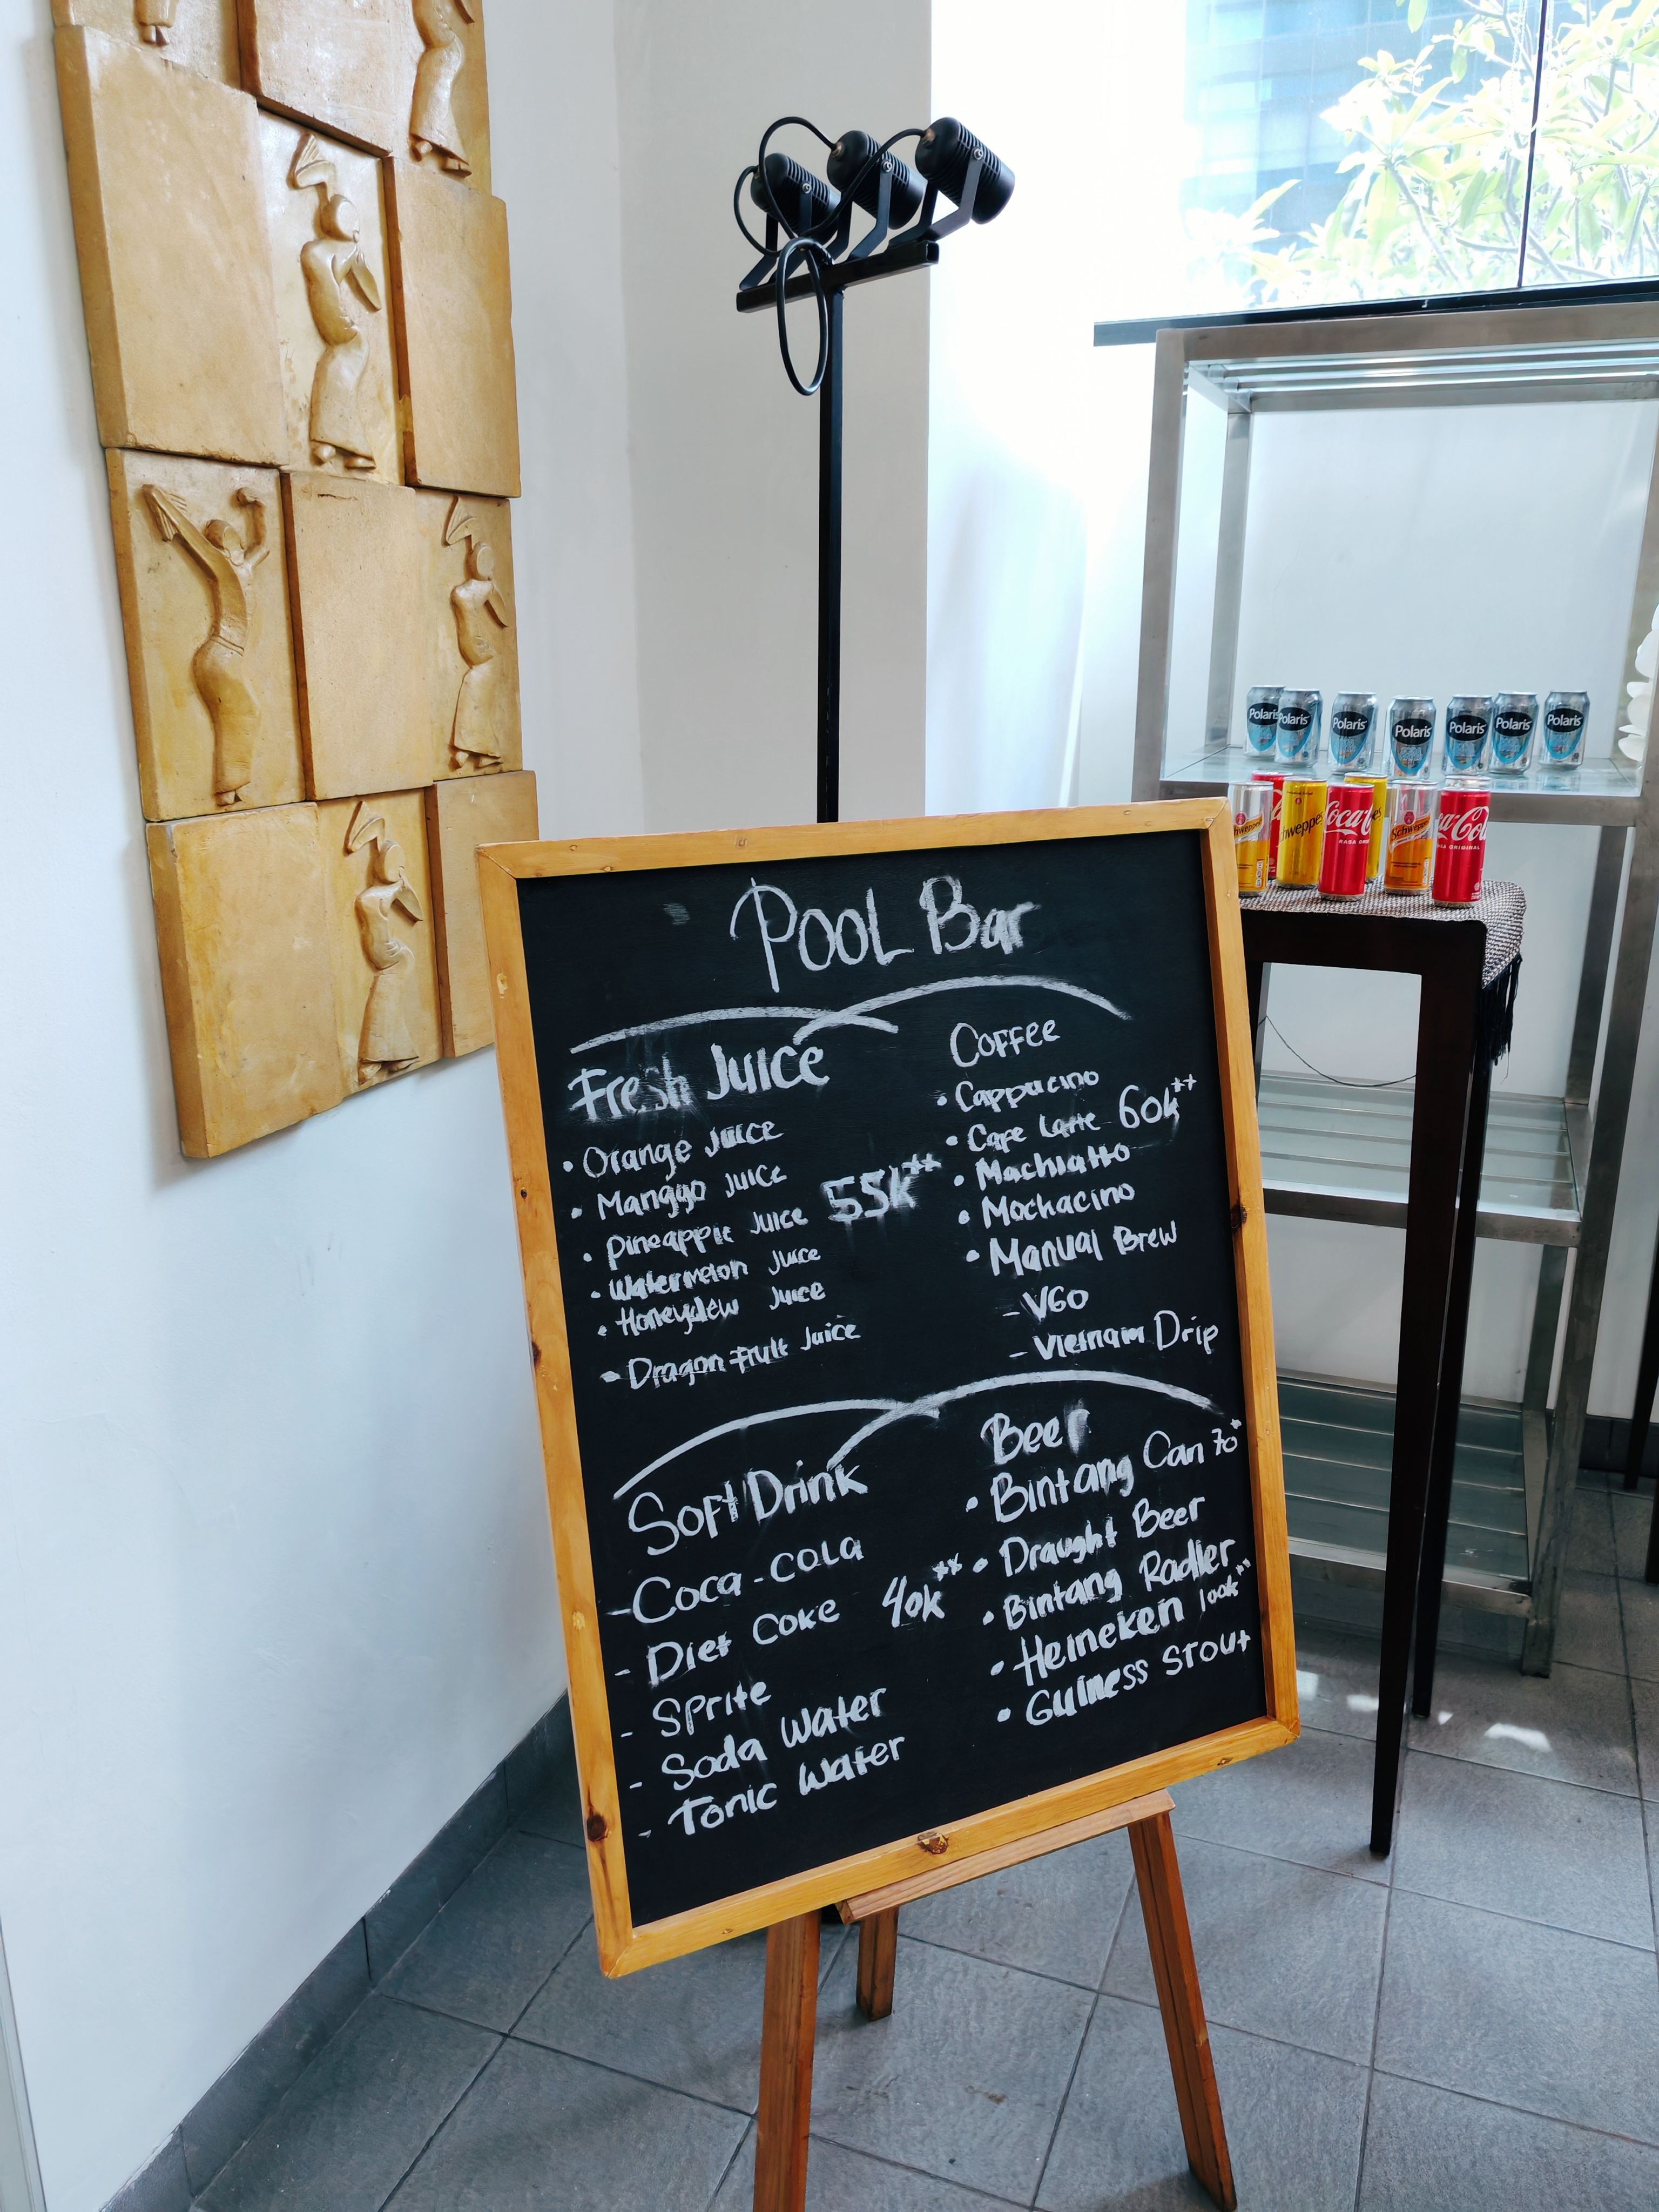 Polaris
Polaris
Polaris
Polaris
Polaris
Polaris
Polaris
Schweppes
Coca-Cola
Schweppes
Coca-Cola
POOL Bar
Fresh Juice
• Orange Juice
• Manggo Juice
• Pineapple Juice 55k++
• Watermelon Juice
• Honeydew Juice
• Dragon Fruit Juice
Coffee
• Cappucino
• Cafe Latte 60k++
• Machiatto
• Mochacino
• Manual Brew
- V60
- Vietnam Drip
Soft Drink
- Coca-Cola
- Diet Coke 40k++
- Sprite
- Soda Water
- Tonic Water
Beer
• Bintang Can 70
• Draught Beer
• Bintang Radler
• Heineken 100k++
• Guiness Stout